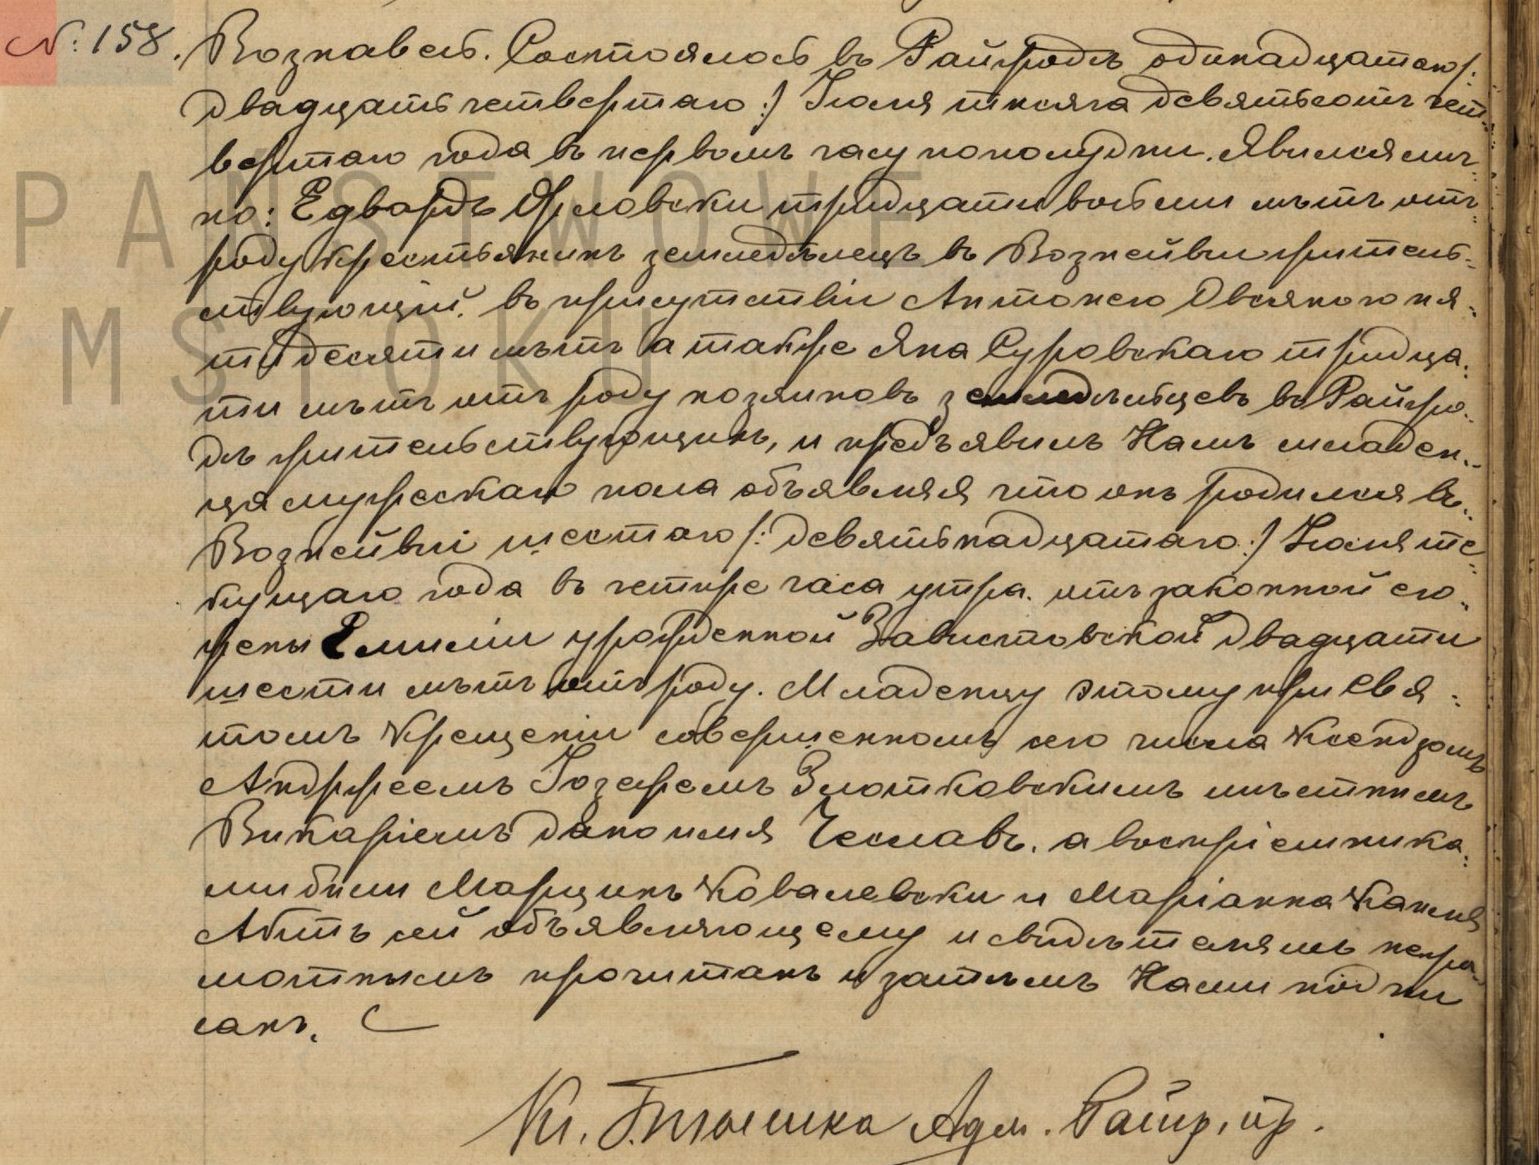 № 158. Вознавесь. Состоялось въ Райгродѣ одинадцатаго /:
двадцать четвертаго :/ Іюля тысяча девятьсотъ чет-
вертаго года въ первомъ часу пополудни. Явился лич-
но: Едвардъ Орловски тридцати восьми лѣтъ отъ
роду крестьянинъ земледѣлецъ въ Вознейвси житель-
ствующій. въ присутствіи Антонего Двояного пя-
тидесяти лѣтъ а также Яна Суровскаго тридца-
ти лѣтъ отъ роду хозяиновъ земледѣльцевъ въ Райгро-
дѣ жительствующихъ, и предъявилъ Намъ младен-
ца мужескаго пола объявляя что онъ родился въ
Вознейвсі шестаго /: девятьнадцатаго :/ Іюля те-
кущаго года въ четыре часа утра. отъ законной его
жены Емиліи урожденной Завистовской двадцати
шести лѣтъ отъ роду. Младенцу этому при Свя-
томъ Крещеніи совершенномъ сего числа Ксендзомъ
Андржеемъ Іозефомъ Злотковскимъ мѣстнымъ
Викаріемъ дано имя Чеславъ. а воспріемника-
ми были Марцинъ Ковалевски и Маріанна
Актъ сей объявляющему и свидѣтелямъ негра-
мотнымъ прочитанъ и затѣмъ Нами подпи
санъ.
Кс. Адм. Райгр. пр.
PAŃSTWOWE
YMSTOKU